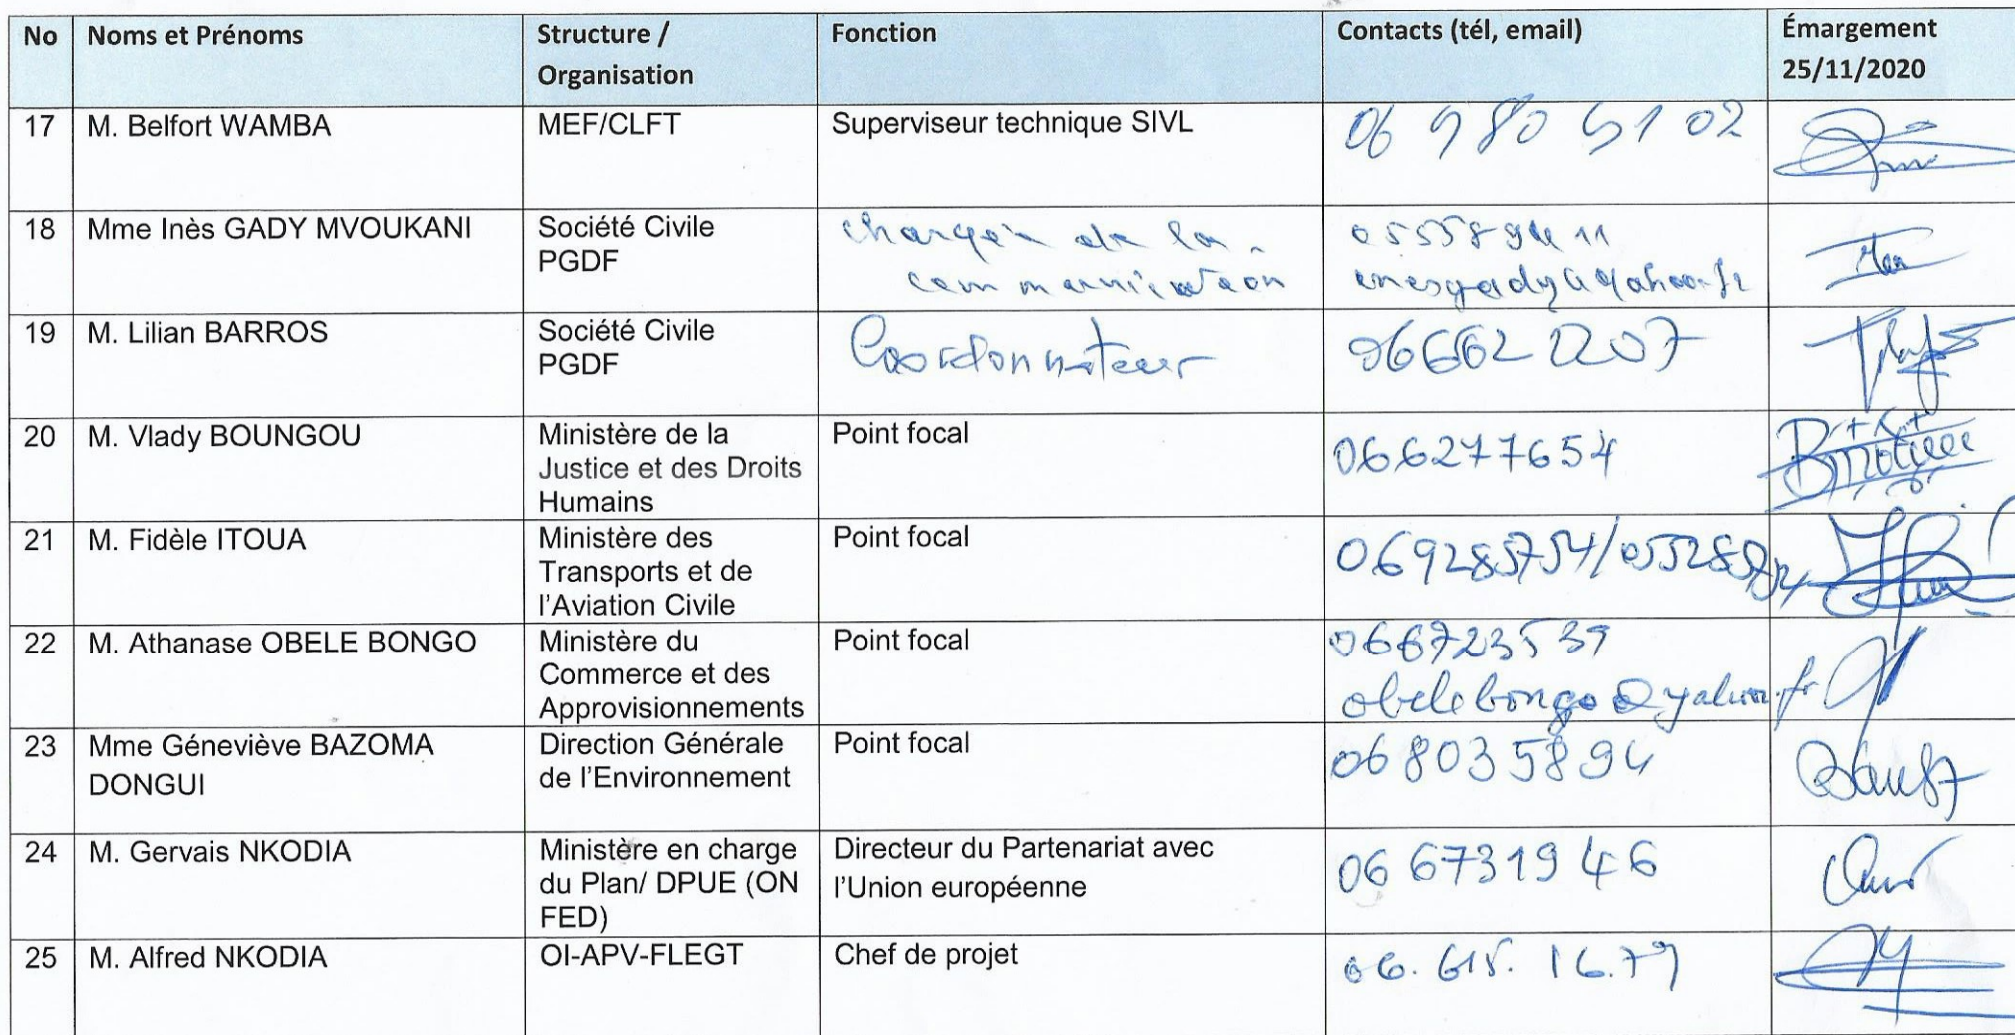 No Noms et Prénoms Structure / Organisation Fonction Contacts (tél, email) Émargement 25/11/2020
17 M. Belfort WAMBA MEF/CLFT Superviseur technique SIVL 06 980 51 02
18 Mme Inès GADY MVOUKANI Société Civile PGDF chargée de la communication 055589411 inesgady@yahoo.fr
19 M. Lilian BARROS Société Civile PGDF Coordonnateur 066622207
20 M. Vlady BOUNGOU Ministère de la Justice et des Droits Humains Point focal 066277654
21 M. Fidèle ITOUA Ministère des Transports et de l'Aviation Civile Point focal 069285754/055285754
22 M. Athanase OBELE BONGO Ministère du Commerce et des Approvisionnements Point focal 066723539 obelebongo@yahoo.fr
23 Mme Géneviève BAZOMA DONGUI Direction Générale de l'Environnement Point focal 06 8035894
24 M. Gervais NKODIA Ministère en charge du Plan/ DPUE (ON FED) Directeur du Partenariat avec l'Union européenne 06 6731946
25 M. Alfred NKODIA OI-APV-FLEGT Chef de projet 06. 615. 16.79